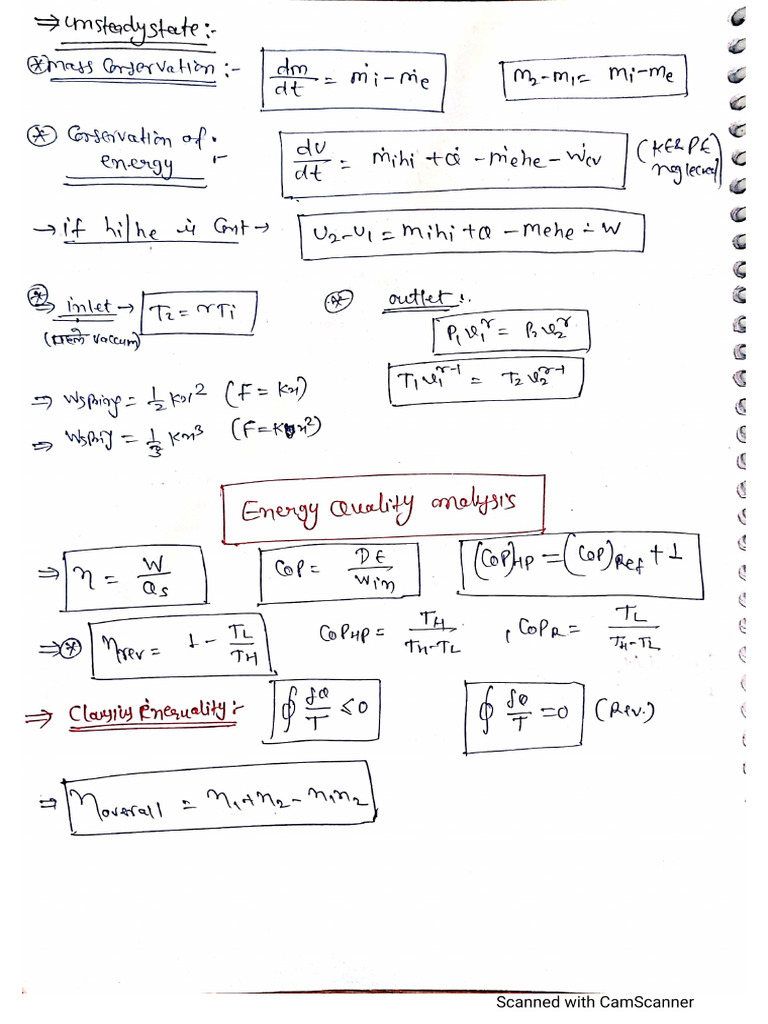 ⇒ Unsteady state :-
⊛ Mass Conservation :- dm/dt = ṁi - ṁe   m2-m1 = mi-me
⊛ Conservation of energy :- dU/dt = ṁihi + Q̇ - ṁehe - Ẇcv (KE & PE neglected)
→ if hi/he is Const → U2-U1 = mihi + Q - mehe - W
⊛ ⇒ inlet → T2 = γTi   ⊛ outlet :-
(पहले vaccum)   P1v1^γ = P2v2^γ
T1v1^γ-1 = T2v2^γ-1
⇒ Wspring = 1/2 Kx² (F = Kx)
⇒ Wspring = 1/3 Kx³ (F = Kx²)
Energy Quality analysis
⇒ η = W/Qs   COP = DE/Win   (COP)HP = (COP)Ref + 1
⇒ ⊛ ηrev = 1 - TL/TH   COPHP = TH/TH-TL , COPR = TL/TH-TL
⇒ Clausius Inequality :- ∮ δQ/T ≤ 0   ∮ δQ/T = 0 (Rev.)
⇒ ηoverall = η1+η2 - η1η2
Scanned with CamScanner